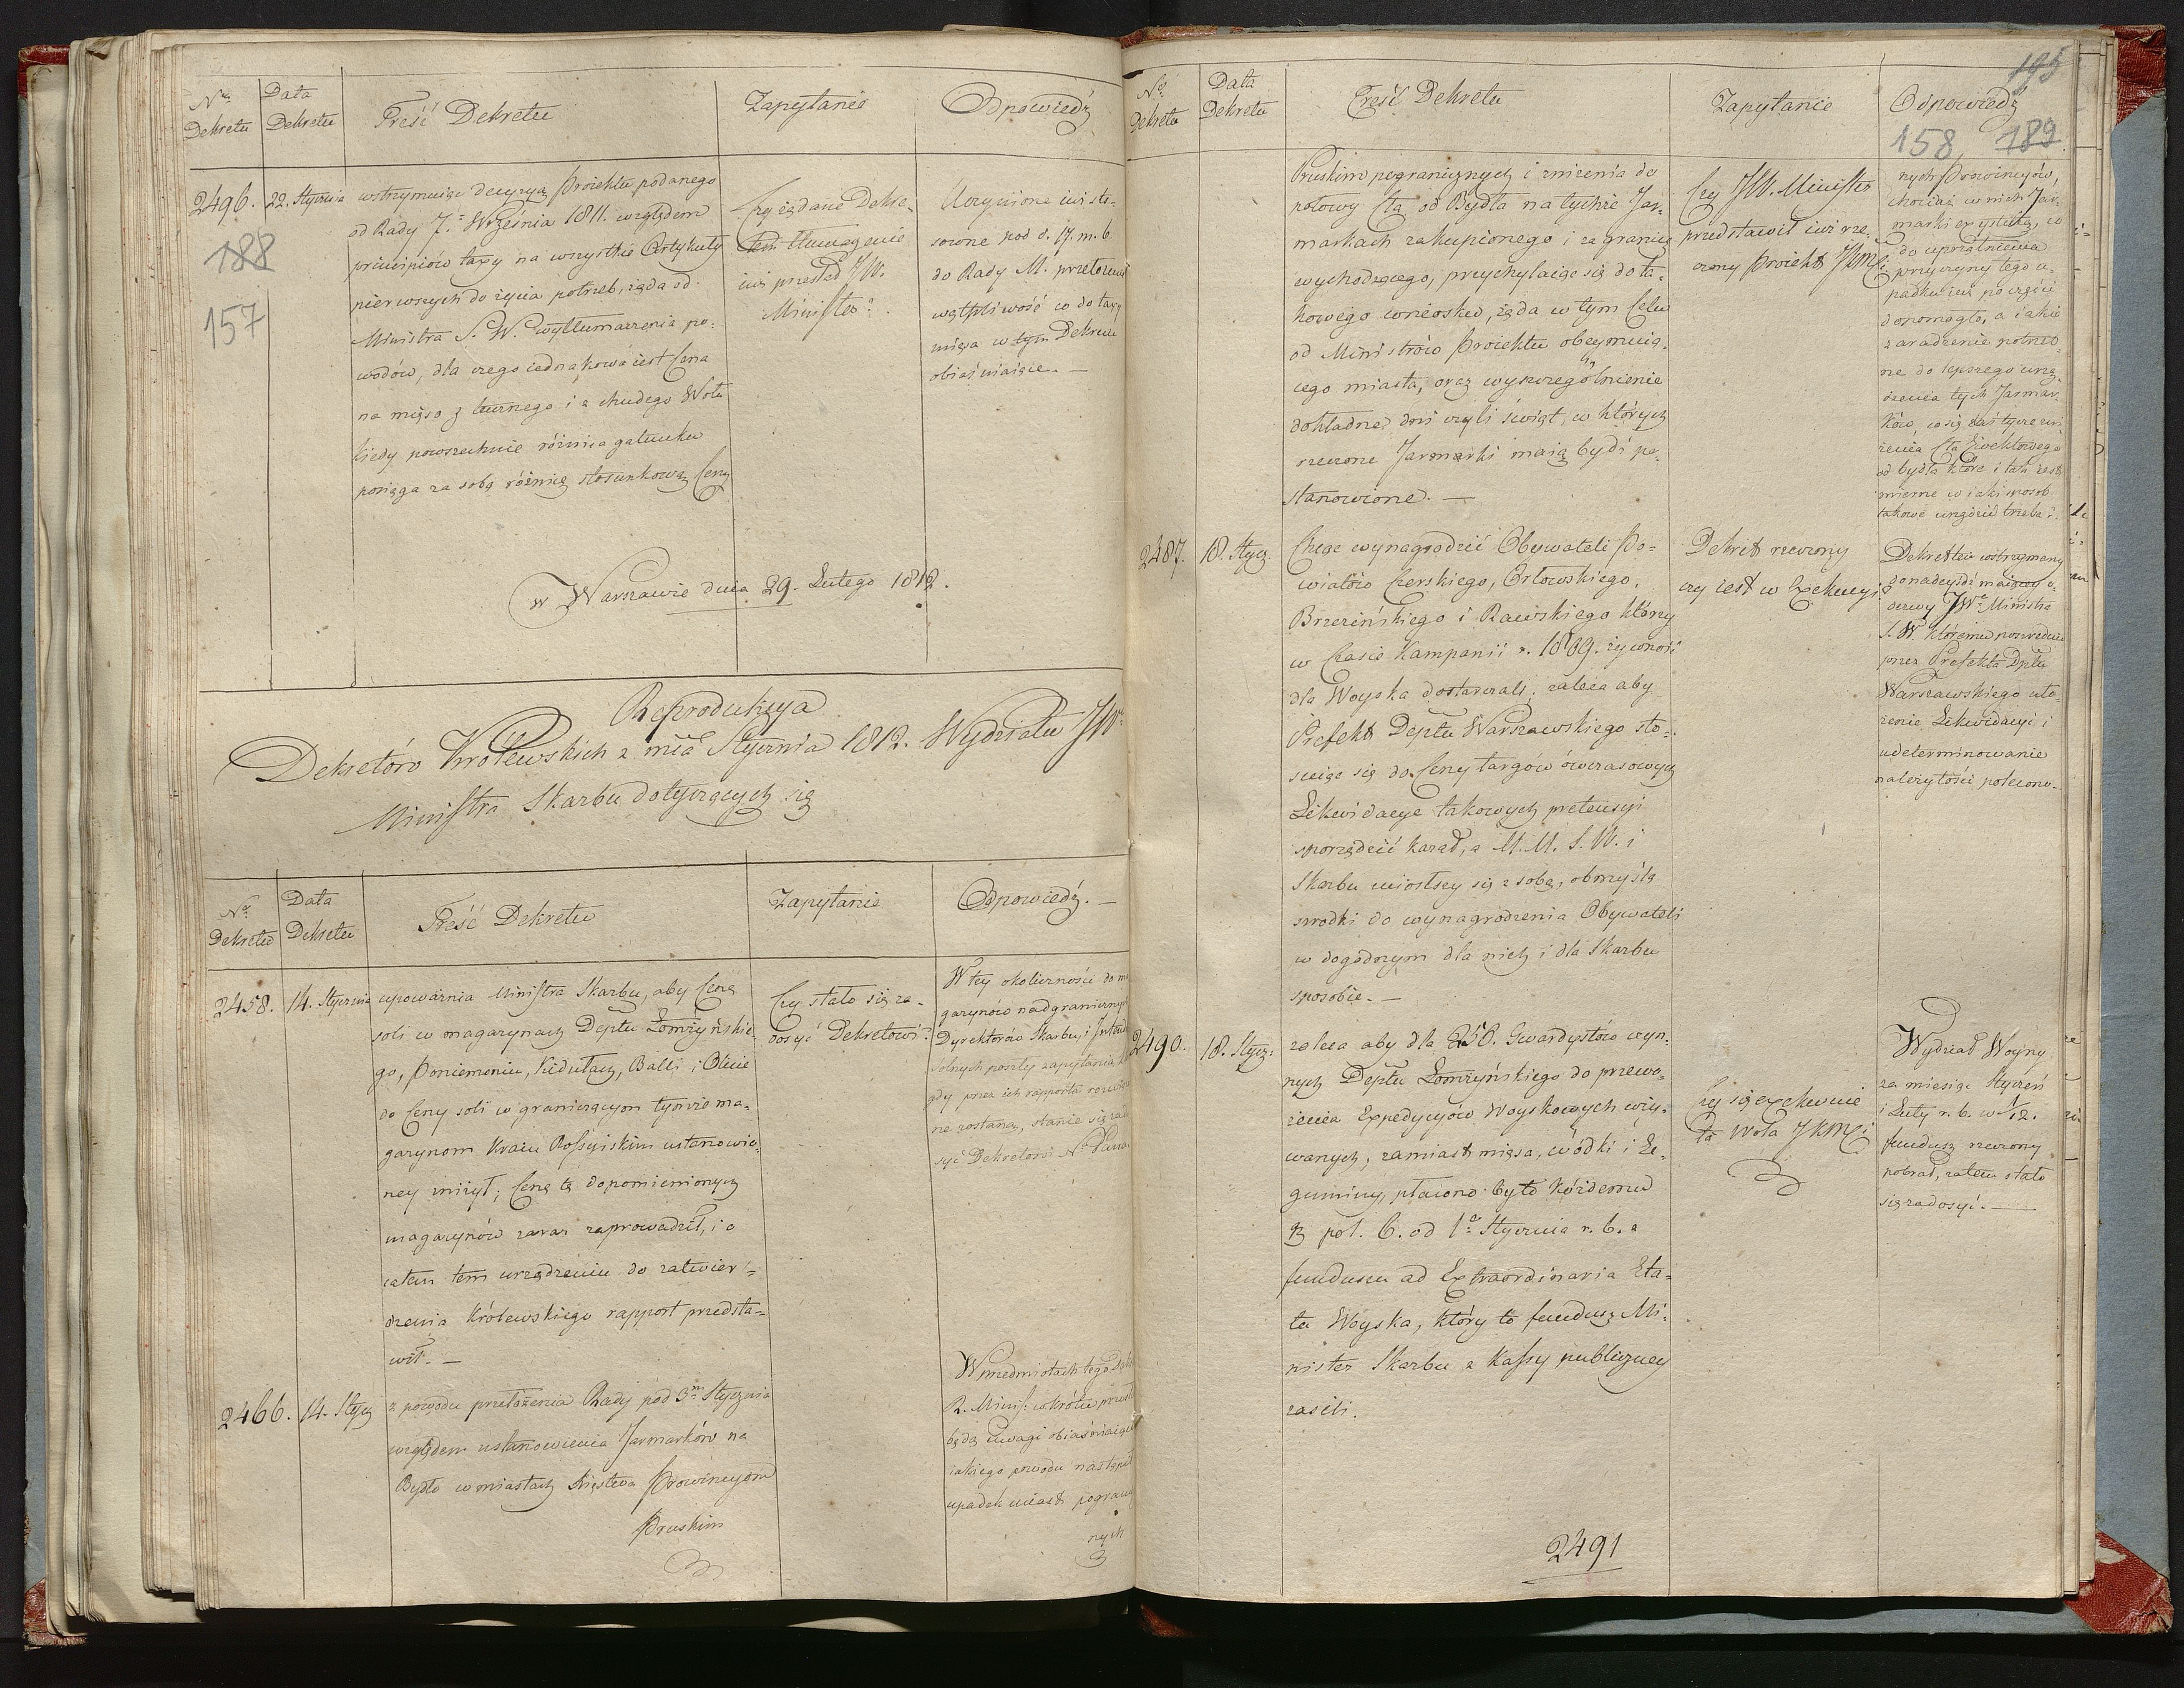 Nro Dekretu
Data Dekretu
Treść Dekretu
Zapytanie
Odpowiedź
2496.
188
157
22. Stycznia
wstrzymuiąc decyzyą Proiektu podanego
od Rady 7. Września 1811. względem
principiów taxy na wszystkie Artykuły
pierwszych do życia potrzeb, żąda od
Ministra S. W. wytłumaczenia po-
wodów, dla czego iednakowa iest Cena
na mięso z tucznego i z chudego Wołu
kiedy powszechnie różnica gatunku
pociąga za sobą różnicę stosunkową Ceny
Czy żądane Dekre-
tem tłumaczenie
iuż przesłał JW.
Minister?
Uczynione iuż sto-
sowne pod d. 17. m. b.
do Rady M. przełożenie
wątpliwość co do taxy
mięsa w tym Dekrecie
obiaśniaiące. —
w Warszawie dnia 29. Lutego 1812.
Reprodukcya
Dekretów Królewskich z mca Stycznia 1812. Wydziału JW
Ministra Skarbu dotyczących się
Nro Dekretu
Data Dekretu
Treść Dekretu
Zapytanie
Odpowiedź. —
2458.
14. Stycznia
upoważnia Ministra Skarbu, aby Cenę
soli w magazynach Deptu Łomżyńskie-
go, Poniemoniu, Kidułach, Balli i Olicie
do Ceny soli w graniczącym tymże ma-
gazynom Kraiu Rossyiskim ustanowio-
ney zniżył; Cenę tę dopomienionych
magazynów zaraz zaprowadził, i o
całem tem urządzeniu do zatwier-
dzenia Królewskiego rapport przedsta-
wił. —
Czy stało się za-
dosyć Dekretowi?
W tey okoliczności do ma
gazynów nadgranicznych
Dyrektorów Skarbu, i
solnych poszły zapytania,
gdy przez ich rapporta
ne zostaną, stanie się zado
syć Dekretowi Nº Pana
2466.
14. Stycz
z powodu przełożenia Rady pod 3m Stycznia
względem ustanowienia Jarmarków na
Bydło w miastach Xięstwa Prowincyom
Pruskim
W przedmiotach tego
R. Minis: wkrótce
będą uwagi obiaśniaiące
iakiego powodu nastąpił
upadek miast pogranicz
nych
Nro Dekretu
Data Dekretu
Treść Dekretu
Zapytanie
Odpowiedź
195
158 189
Pruskim pogranicznych i zniżenia do
połowy Cła od Bydła na tychże Jar-
markach zakupionego i za granicę
wychodzącego, przychylaiąc się do ta-
kowego wniosku, żąda w tym Celu
od Ministrów Proiektu obeymuią-
cego miasta, oraz wyszczególnienie
dokładne dni czyli świąt, w których
rzeczone Jarmarki maią bydź po-
stanowione. —
Czy JW. Minister
przedstawił iuż rze-
czony Proiekt JKMci
nych Prowincyów,
chociaż w nich Jar-
marki exystuią, co
do uprzątnienia
przyczyny tego u-
padku iuż po części
dopomogło, a iakie
zaradzenie potrzeb-
ne do lepszego urzą-
dzenia tych Jarmar-
ków, co się zaś tycze zni-
żenia Cła Eivektowego
od bydła które i tak iest
mierne w iaki sposob
takowe urządzić trzeba
2487.
18. Stycz.
Chcąc wynagrodzić Obywateli Po-
wiatów Czerskiego, Orłowskiego,
Brzezińskiego i Rawskiego którzy
w Czasie Kampanii r. 1809. żywność
dla Woyska dostarczali, zaleca aby
Prefekt Deptu Warszawskiego sto-
suiąc się do Ceny targów ówczasowych
Likwidacye takowych pretensyi
sporządzić kazał, a M. M. S. W. i
Skarbu zniosłszy się z sobą, obmyślą
srodki do wynagrodzenia Obywateli
w dogodnym dla nich i dla Skarbu
sposobie. —
Dekret rzeczony
czy iest w Exekucyi?
Dekret ten wstrzymany
do nadeyść maiącey o-
dezwy JWo Ministra
S. W. któremu poprzednie
przez Prefekta Dptu
Warszawskiego uło-
żenie Likwidacyi i
udeterminowanie
należytości polecono.
2490.
18. Stycz:
zaleca aby dla 250. Gwardystów czyn-
nych Deptu Łomżyńskiego do przewo-
żenia Expedycyów Woyskowych uży-
wanych, zamiast mięsa, wódki i Le-
guminy, płacono było każdemu
gr pol. 6. od 1o Stycznia r. b. z
funduszu ad Extraordinaria Eta-
tu Woyska, który to fundusz Mi-
nister Skarbu z Kassy publiczney
zasili.
Czy się exekwuie
ta Wola JKMci
Wydział Woyny
za miesiąc Styczeń
i Luty r. b. w 1/12.
fundusz rzeczony
pobrał, zatem stało
się zadosyć. —
2491